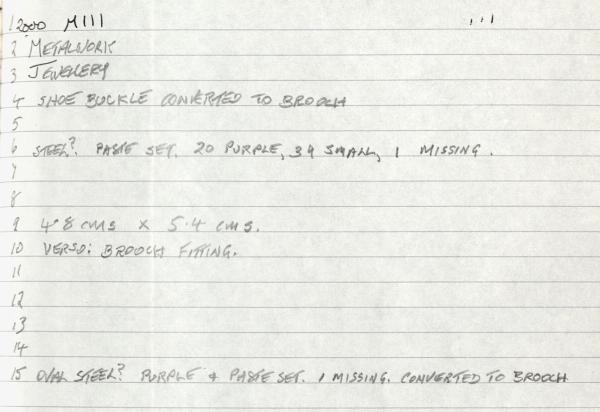 1 2000 M111
2 METALWORK
3 JEWELLERY
4 SHOE BUCKLE CONVERTED TO BROOCH
5
6 STEEL? PASTE SET. 20 PURPLE, 34 SMALL, 1 MISSING.
7
8
9 4.8 CMS X 5.4 CMS.
10 VERSO: BROOCH FITTING.
11
12
13
14
15 OVAL STEEL? PURPLE & PASTE SET. 1 MISSING. CONVERTED TO BROOCH